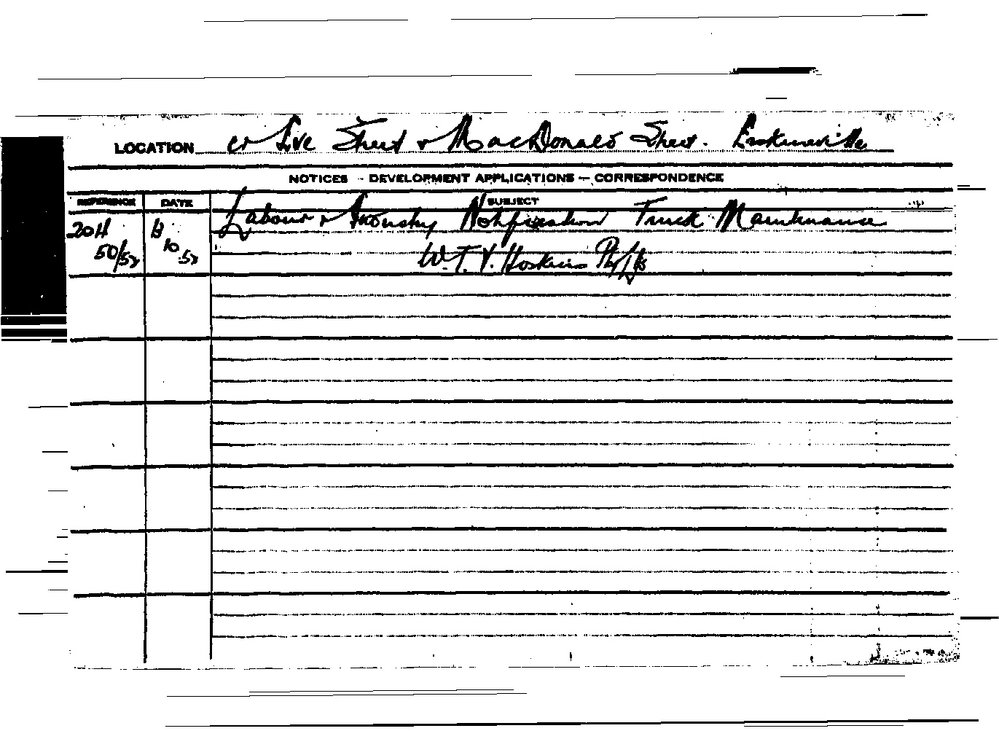 LOCATION cr Eve Street & MacDonald Street. Erskineville
NOTICES - DEVELOPMENT APPLICATIONS - CORRESPONDENCE
REFERENCE DATE SUBJECT
2011 13 Labour & Industry Notification Truck Maintenance
50/52 10.52 W.T.V. Hoskins Pty Ltd